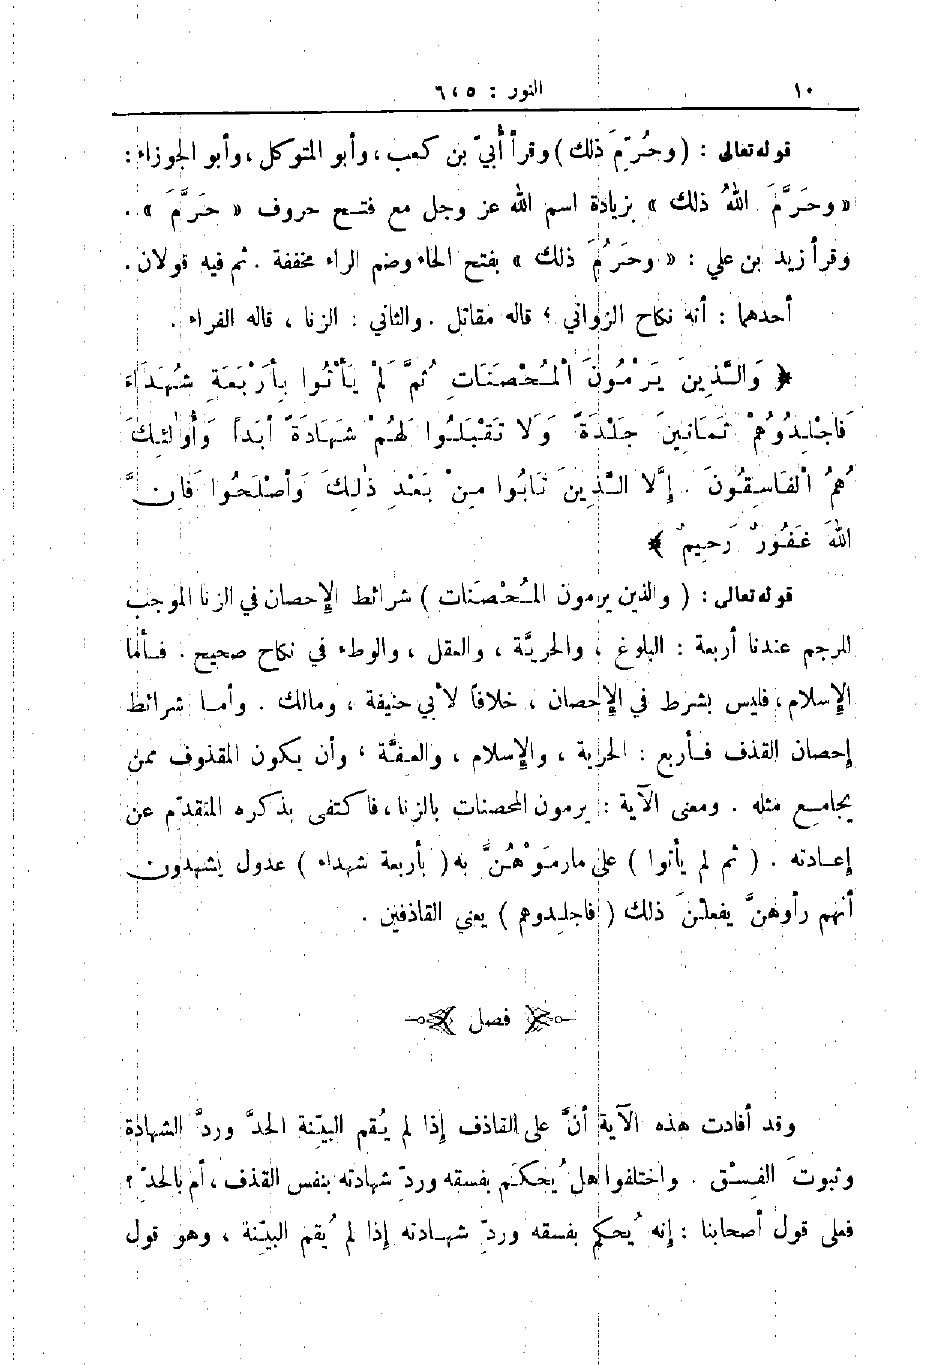 ١٠ النور : ٦،٥
قوله تعالى : ( وحُرِّمَ ذلك ) وقرأ أُبيّ بن كعب ، وأبو المتوكل ، وأبو الجوزاء :
« وحَرَّمَ اللهُ ذلك » بزيادة اسم الله عز وجل مع فتح حروف « حَرَّمَ » .
وقرأ زيد بن علي : « وحَرُمَ ذلك » بفتح الحاء وضم الراء مخففة . ثم فيه قولان .
أحدهما : أنه نكاح الزواني ؛ قاله مقاتل . والثاني : الزنا ، قاله الفراء .
﴿ وَالَّذِينَ يَرْمُونَ الْمُحْصَنَاتِ ثُمَّ لَمْ يَأْتُوا بِأَرْبَعَةِ شُهَدَاءَ
فَاجْلِدُوهُمْ ثَمَانِينَ جَلْدَةً وَلَا تَقْبَلُوا لَهُمْ شَهَادَةً أَبَداً وَأُولَٰئِكَ
هُمُ الْفَاسِقُونَ . إِلَّا الَّذِينَ تَابُوا مِنْ بَعْدِ ذَٰلِكَ وَأَصْلَحُوا فَإِنَّ
اللهَ غَفُورٌ رَحِيمٌ ﴾
قوله تعالى : ( والذين يرمون المُحْصَنَات ) شرائط الإحصان في الزنا الموجب
للرجم عندنا أربعة : البلوغ ، والحريَّة ، والعقل ، والوطء في نكاح صحيح . فأما
الإسلام ، فليس بشرط في الإحصان ، خلافاً لأبي حنيفة ، ومالك . وأما شرائط
إحصان القذف فأربع : الحرية ، والإسلام ، والعفَّة ، وأن يكون المقذوف ممن
يجامع مثله . ومعنى الآية : يرمون المحصنات بالزنا ، فاكتفى بذكره المتقدّم عن
إعادته . ( ثم لم يأتوا ) على مارمَوْهُنَّ به ( بأربعة شهداء ) عدول يشهدون
أنهم رأوهنَّ يفعلْنَ ذلك ( فاجلدوهم ) يعني القاذفين .
فصل
وقد أفادت هذه الآية أنَّ على القاذف إذا لم يُقم البيّنة الحدَّ وردَّ الشهادة
وثبوتَ الفِسْق . واختلفوا هل يُحكَم بفسقه وردِّ شهادته بنفس القذف ، أم بالحدّ ؟
فعلى قول أصحابنا : إنه يُحكم بفسقه وردِّ شهادته إذا لم يُقم البيّنة ، وهو قول